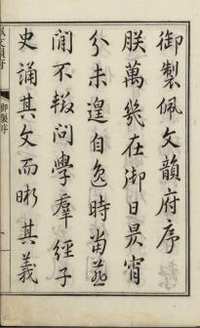 御製佩文韻府序
朕萬幾在御日昃宵
分未遑自逸時當燕
閒不輟問學羣經子
史誦其文而晰其義
御製序